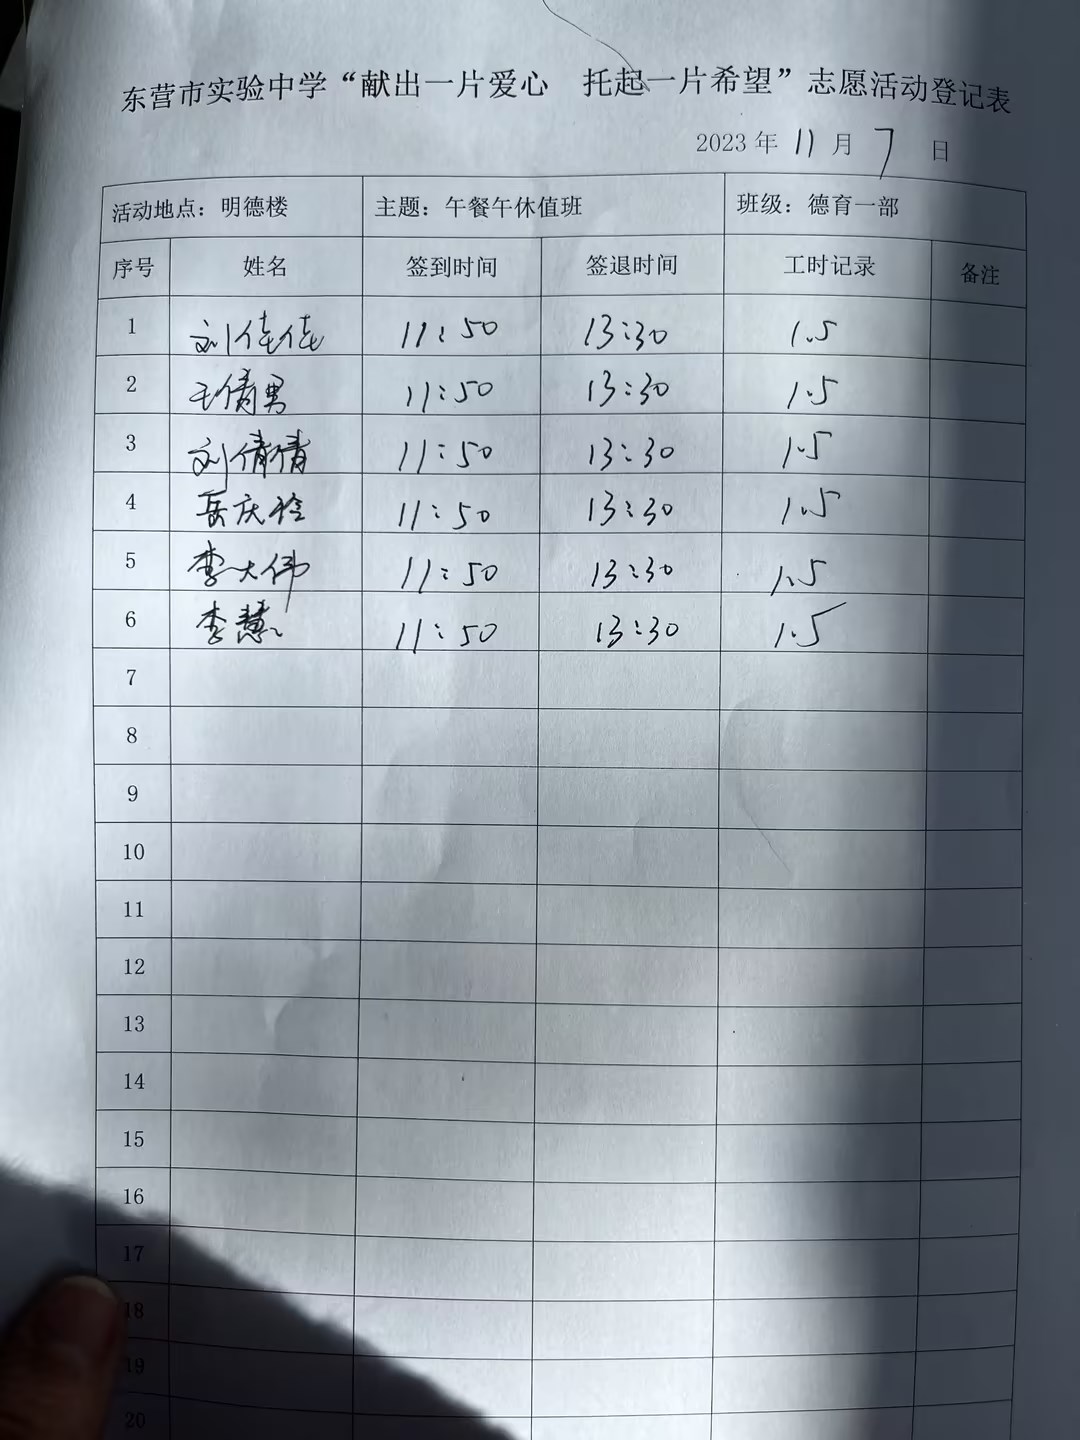 东营市实验中学“献出一片爱心　托起一片希望”志愿活动登记表
2023 年 11 月 7 日
活动地点：明德楼 主题：午餐午休值班 班级：德育一部
序号 姓名 签到时间 签退时间 工时记录 备注
1 刘佳佳 11:50 13:30 1.5
2 王倩男 11:50 13:30 1.5
3 刘倩倩 11:50 13:30 1.5
4 岳庆 11:50 13:30 1.5
5 李大伟 11:50 13:30 1.5
6 李慧 11:50 13:30 1.5
7
8
9
10
11
12
13
14
15
16
17
18
19
20